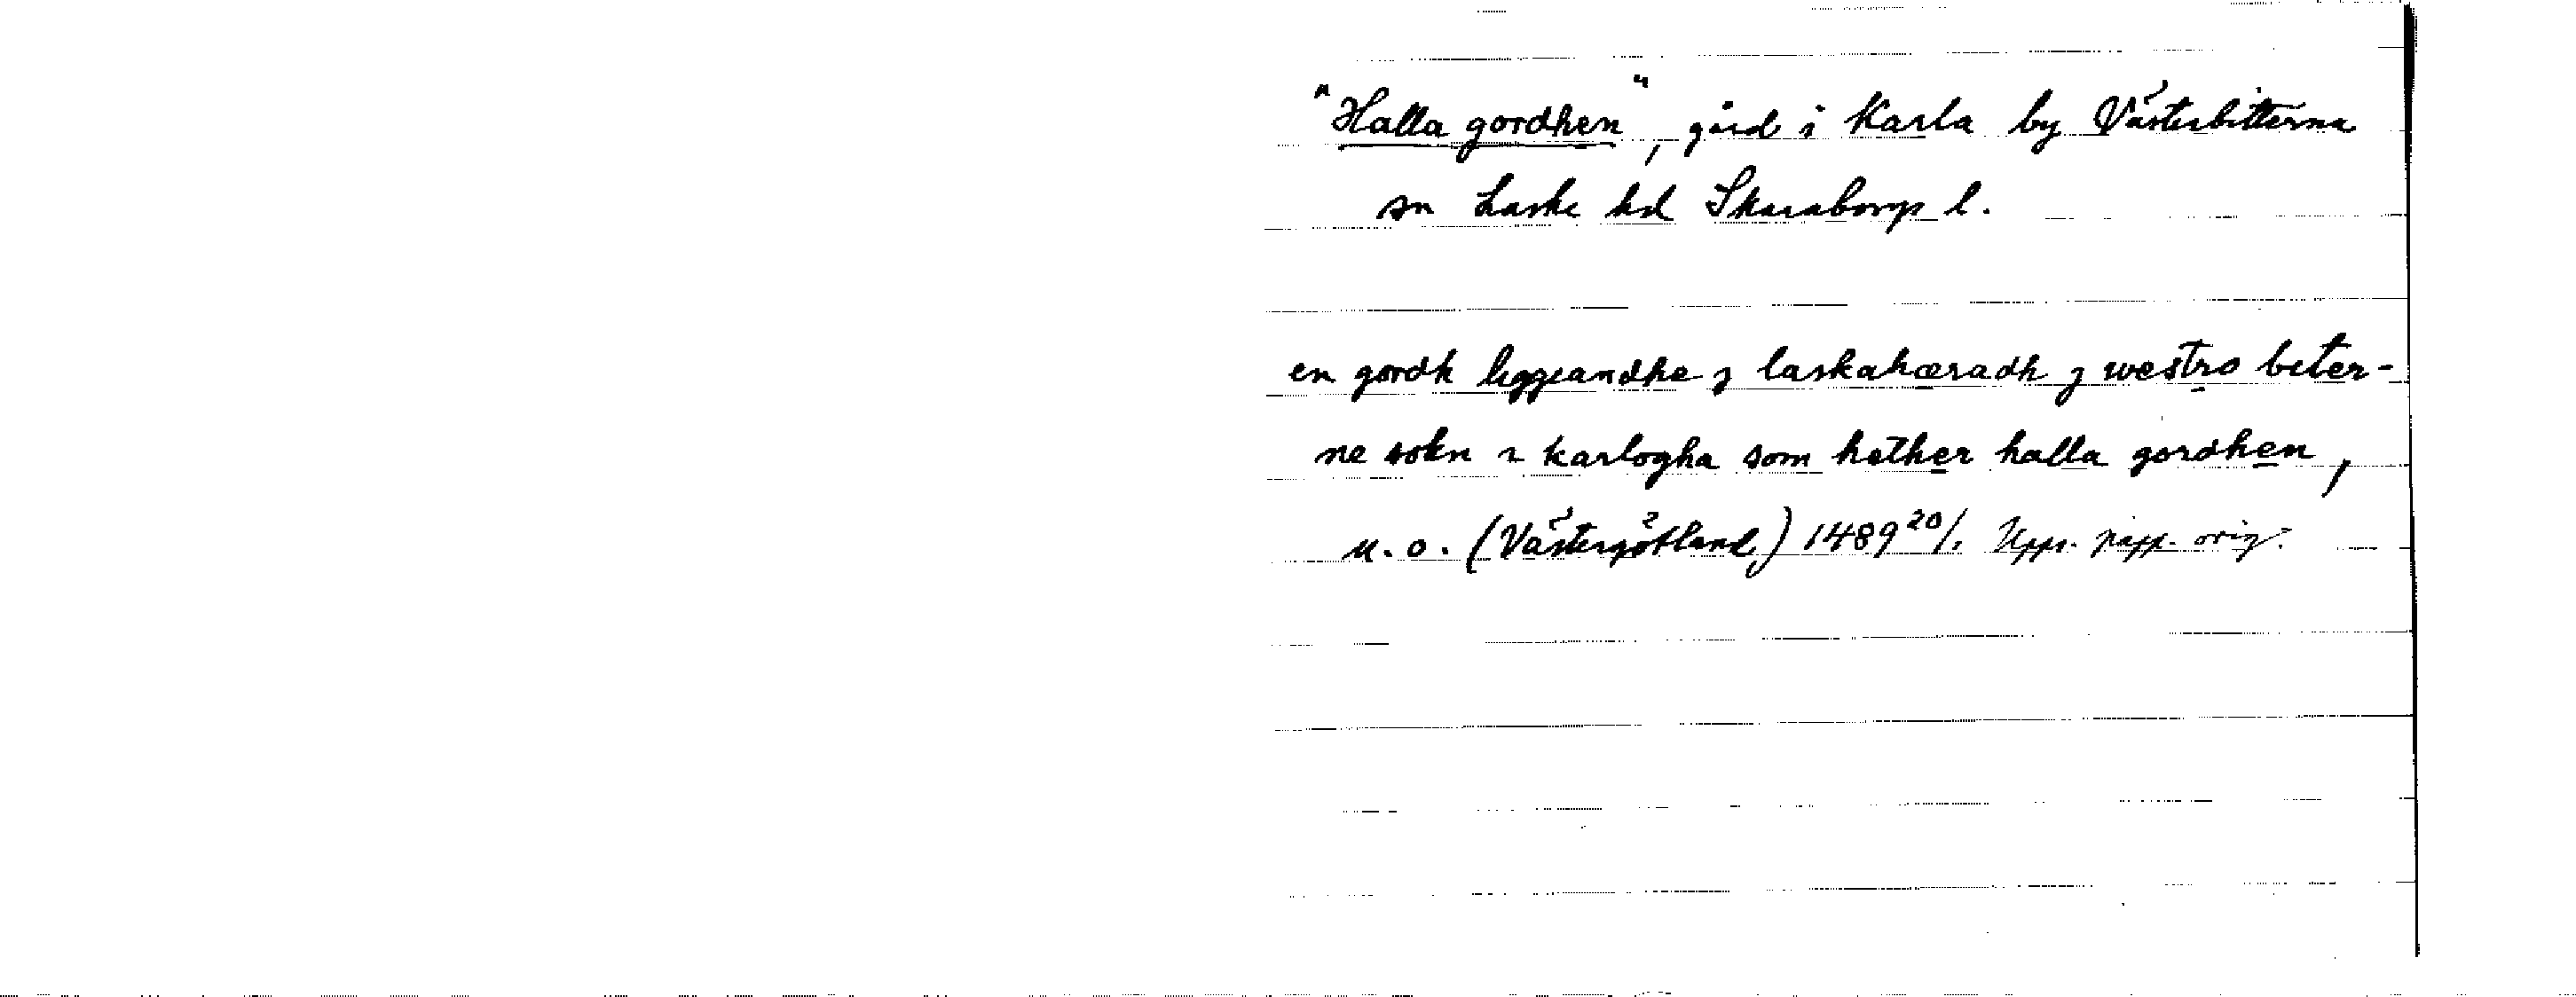 "Halla gordhen", gård i Karla by Västerbitterna
sn Laske hd Skaraborgs l.
en gordh liggeandhe j laskahæradh j westro beter-
ne sokn i karlogha som hether halla gordhen,
u.o. (Västergötland) 1489 20/1 Upps. papp. orig.